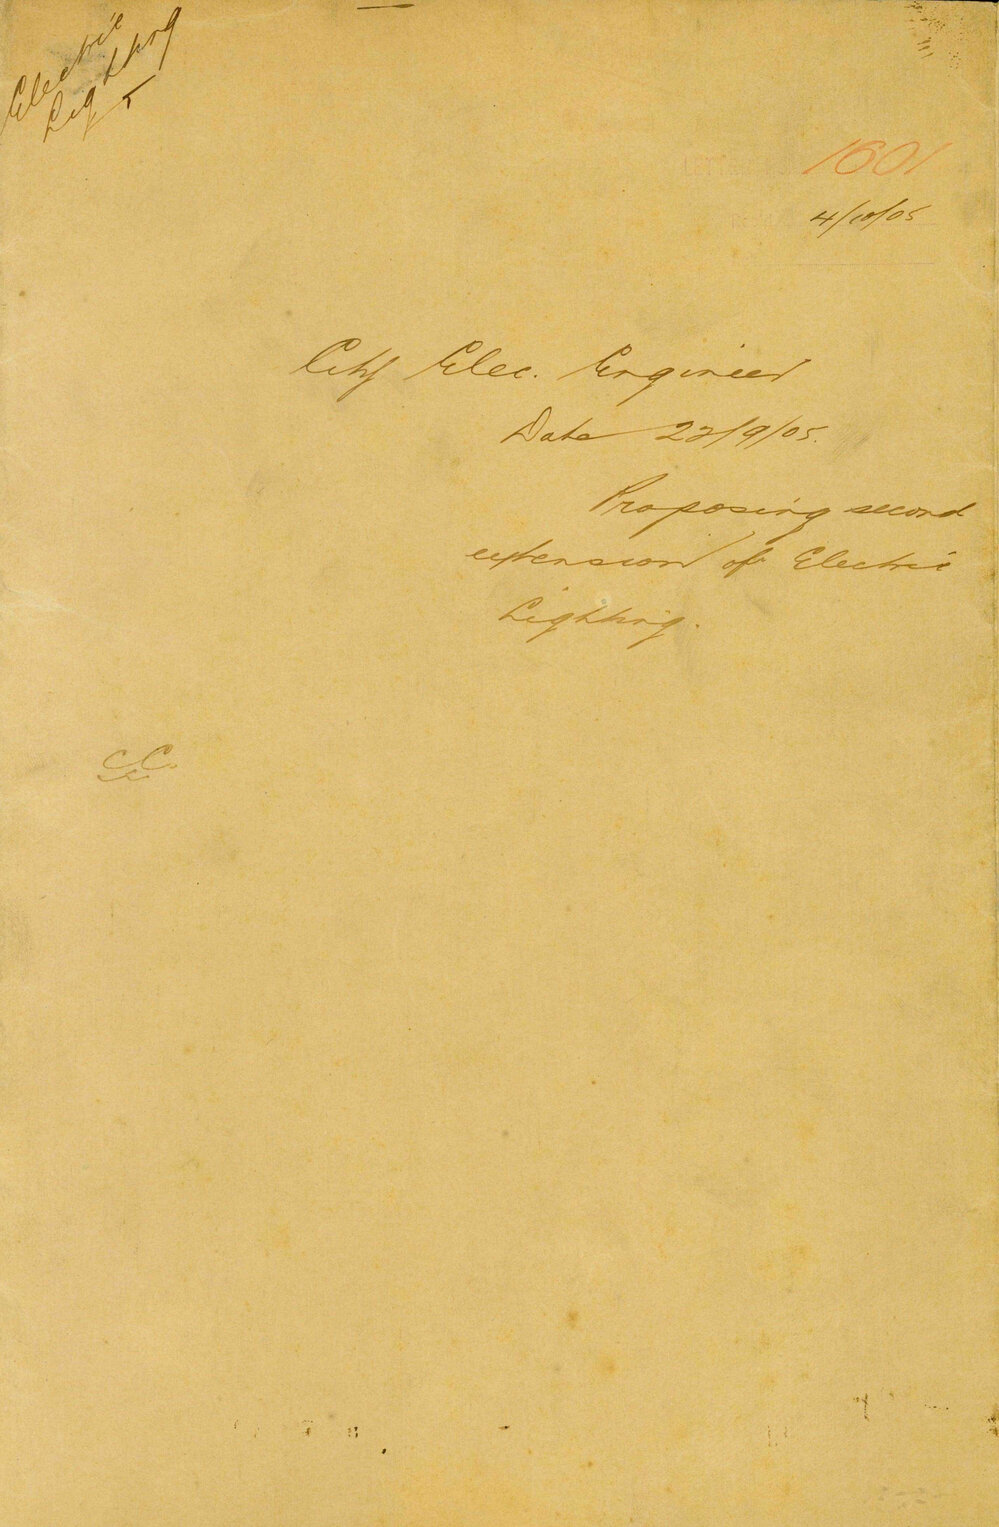 Electric
Lighting
1601
4/10/05
City Elec. Engineer
Date 22/9/05.
Proposing second
extension of Electric
Lighting.